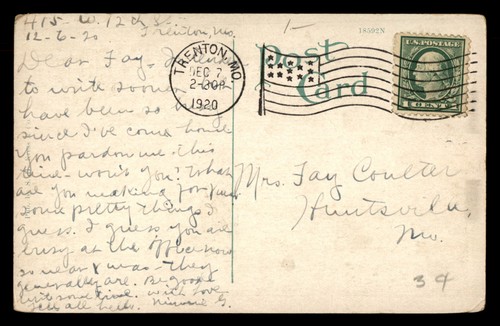 415 W. 12th St.
12-6-20 Trenton, Mo.
Dear Fay - 
to write soon
have been so
since I've come home
You pardon me this
time - won't you? What
are you making for Xmas
some pretty things I
guess. I guess you are
busy at the office now
so near Xmas - They
generally are. Be good
write some time. With love
Minnie G.
1
18592N
Post
Card
TRENTON, MO.
DEC 7
2-30P
1920
U.S. POSTAGE
1 CENT 1
Mrs. Fay Coulter
Huntsville,
Mo.
34